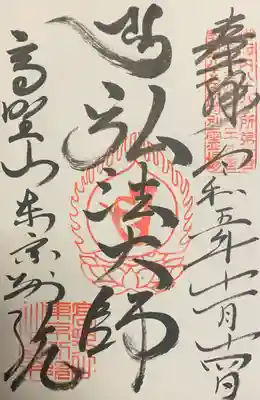 奉拝 令和五年十一月十四日
弘法大師
高野山東京別院